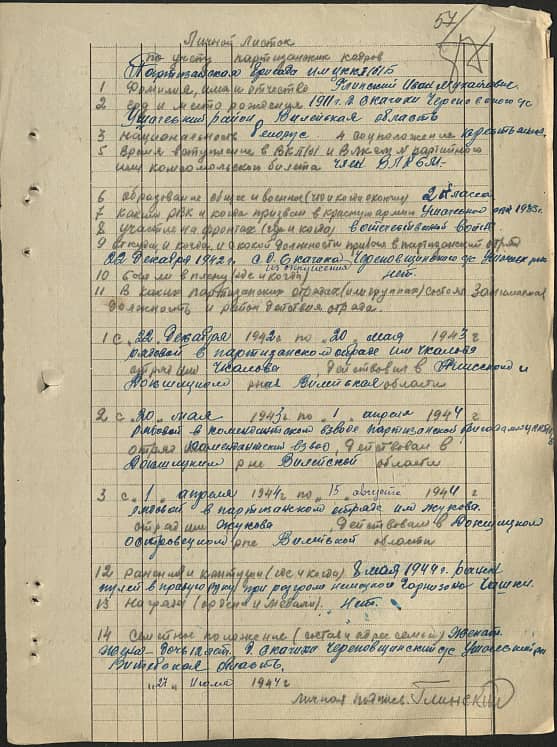 57
Личной Листок
по учету партизанских кадров
Партизанская Бригада им ЦККП(б)Б
1 Фамилия, имя и отчество Глинский Иван Михайлович
2 год и место рождения 1911 г. д Скачиха Череповского с/с
Ушачский район Вилейская область
3 Национальность белорус. 4 Соцположение
5 Время вступления в ВКП(б) и ВЛКСМ № партийного
или комсомольского билета член ВЛКСМ
6 образование общее и военное (что и когда окончил) 2 класса
7 Каким РВК и когда призван в красную армию Ушачский 1933 г.
8 участие на фронтах (где и когда) в отечественной войне
9 откуда и когда, и с какой должности прибыл в партизанский отряд
22 декабря 1942 г. с д. Скачиха Череповщинского с/с
из окружения
10 Был ли в плену (где и когда) нет.
11 В каких партизанских отрядах (или группах) состоял Занимаемая
должность и район действия отряда.
1 С „22„ декабря 1942 г по „20„ мая 1943 г
рядовой в партизанском отряде им Чкалова
отряд им Чкалова, действовал в и
Докшицком р-не Вилейская области
2 с „20„ мая 1943 г по „1„ апреля 1944 г
рядовой в комендантском взводе партизанской бригады им ЦККП(б)Б
отряд комендантский взвод, действовал в
Докшицком р-не Вилейской области
3 с „1„ апреля 1944 г по „15„ августа 1944 г
рядовой в партизанском отряде им Жукова.
отряд им Жукова, действовал в Докшицком
Островецком р-не Вилейской области
12 ранения и контузии (где и когда) 8 мая 1944 г. ранен
пулей в правую руку при разгроме немецкого гарнизона Чашки.
13 Награды (ордена и медали). Нет.
14 Семейное положение (состав и адрес семьи) Женат.
Жена дочь д. Скачиха Череповщинский с/с Ушачский р-н
Витебская область,
„27„ 1944 г
личная подпись. Глинский